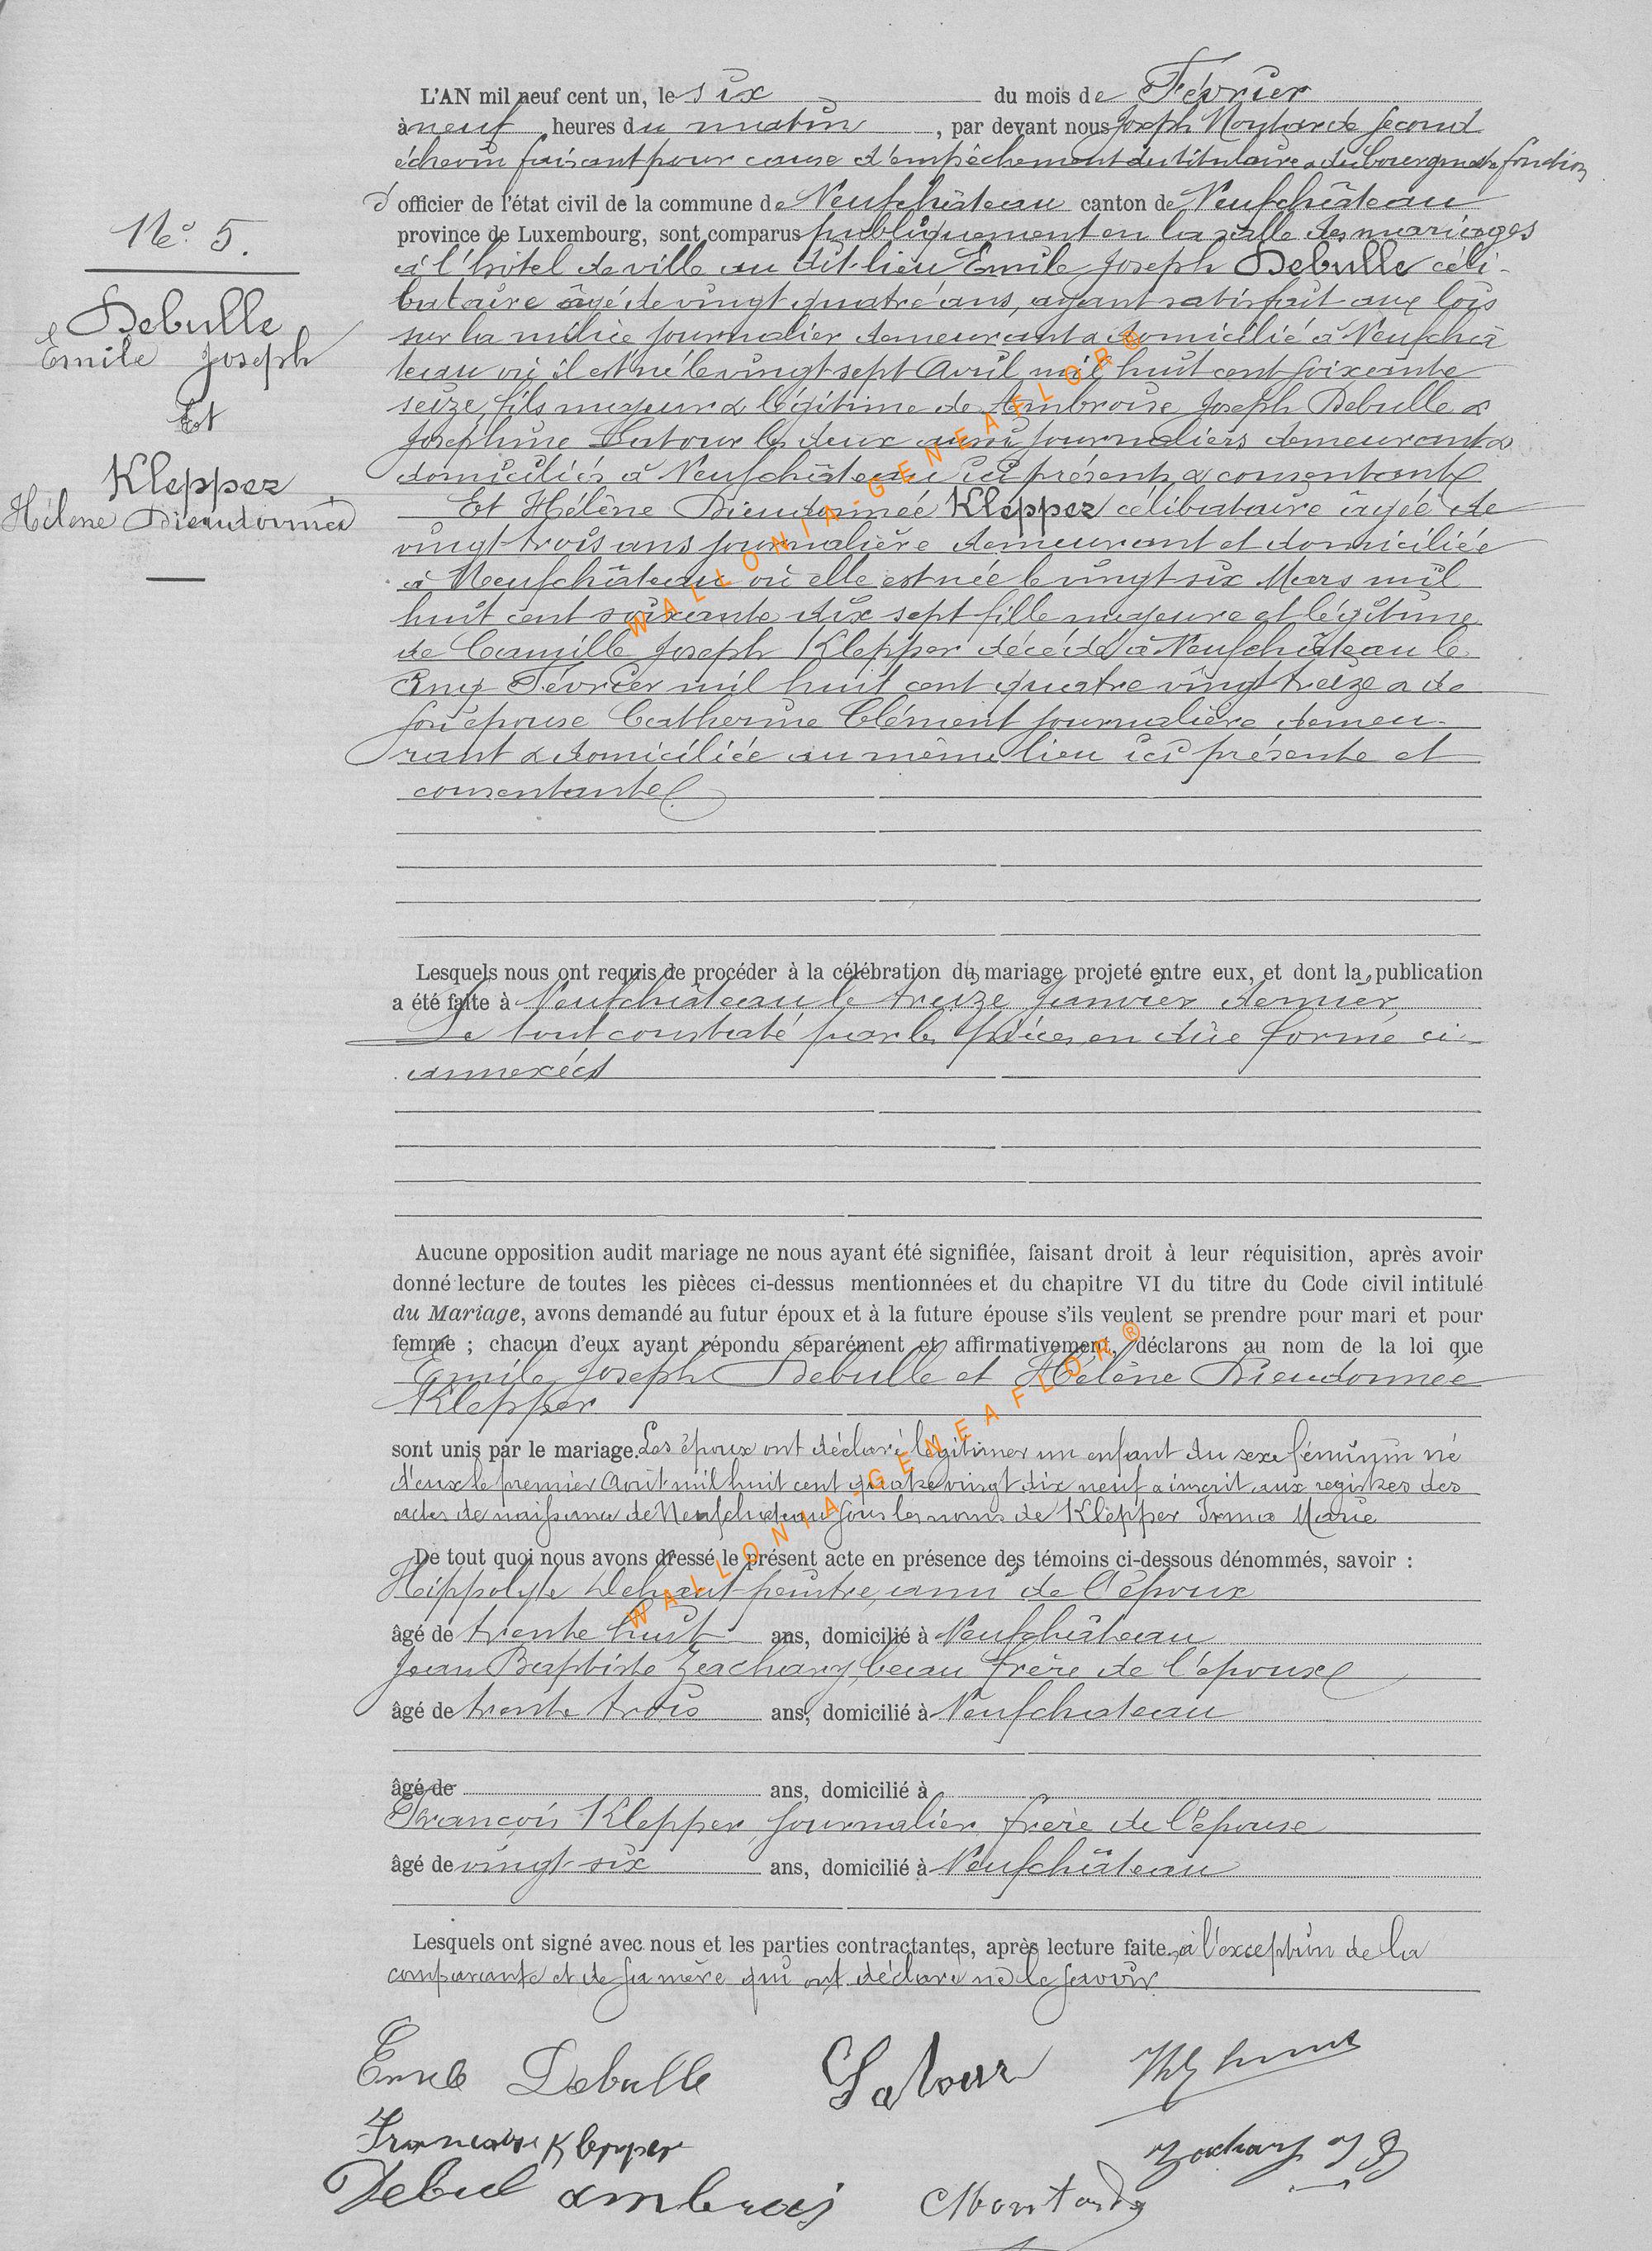 L'AN mil neuf cent un, le six du mois de Février
à neuf heures du matin, par devant nous Joseph second
échevin faisant pour cause d'empêchement du titulaire & du bourgmestre fonction
d'officier de l'état civil de la commune de Neufchâteau canton de Neufchâteau
province de Luxembourg, sont comparus publiquement en la salle des mariages
à l'hôtel de ville au dit-lieu Emile Joseph Debulle céli-
bataire âgé de vingt quatre ans, ayant satisfait aux lois
sur la milice journalier demeurant & domicilié à Neufchâ
teau où il est né le vingt sept Avril mil huit cent soixante
seize, fils majeur & légitime de Ambroise Joseph Debulle &
Joséphine Latour les deux aussi journaliers demeurant &
domiciliés à Neufchâteau ici présents & consentants
Et Hélène Dieudonnée Klepper célibataire âgée de
vingt trois ans journalière demeurant et domiciliée
à Neufchâteau où elle est née le vingt six Mars mil
huit cent soixante dix sept fille majeure et légitime
de Camille Joseph Klepper décédé à Neufchâteau le
cinq Février mil huit cent quatre vingt treize & de
son épouse Catherine Clément journalière demeu-
rant & domiciliée au même lieu ici présente et
consentante
No. 5.
Debulle
Emile Joseph
Et
Klepper
Hélène Dieudonnée
Lesquels nous ont requis de procéder à la célébration du mariage projeté entre eux, et dont la publication
a été faite à Neufchâteau, le treize Janvier dernier,
Le tout constaté par les pièces en due forme ci-
annexées
Aucune opposition audit mariage ne nous ayant été signifiée, faisant droit à leur réquisition, après avoir
donné lecture de toutes les pièces ci-dessus mentionnées et du chapitre VI du titre du Code civil intitulé
du Mariage, avons demandé au futur époux et à la future épouse s'ils veulent se prendre pour mari et pour
femme ; chacun d'eux ayant répondu séparément et affirmativement, déclarons au nom de la loi que
Emile Joseph Debulle et Hélène Dieudonnée
Klepper
sont unis par le mariage. Les époux ont déclaré légitimer un enfant du sexe féminin né
d'eux le premier Août mil huit cent quatre vingt dix neuf & inscrit aux registres des
actes de naissance de Neufchateau sous les noms de Klepper Irma Marie
De tout quoi nous avons dressé le présent acte en présence des témoins ci-dessous dénommés, savoir :
Hippolyte peintre, ami de l'époux
âgé de trente huit ans, domicilié à Neufchâteau
Jean Baptiste Zachary, beau frère de l'époux
âgé de trente trois ans, domicilié à Neufchateau
âgé de ans, domicilié à
François Klepper, journalier, frère de l'épouse
âgé de vingt-six ans, domicilié à Neufchâteau
Lesquels ont signé avec nous et les parties contractantes, après lecture faite, à l'exception de la
comparante et de sa mère qui ont déclaré ne le savoir
Emile Debulle Latour
François Klepper Zachary J B
Debul ambrois
WALLONIA-GENEAFLOR®
WALLONIA-GENEAFLOR®